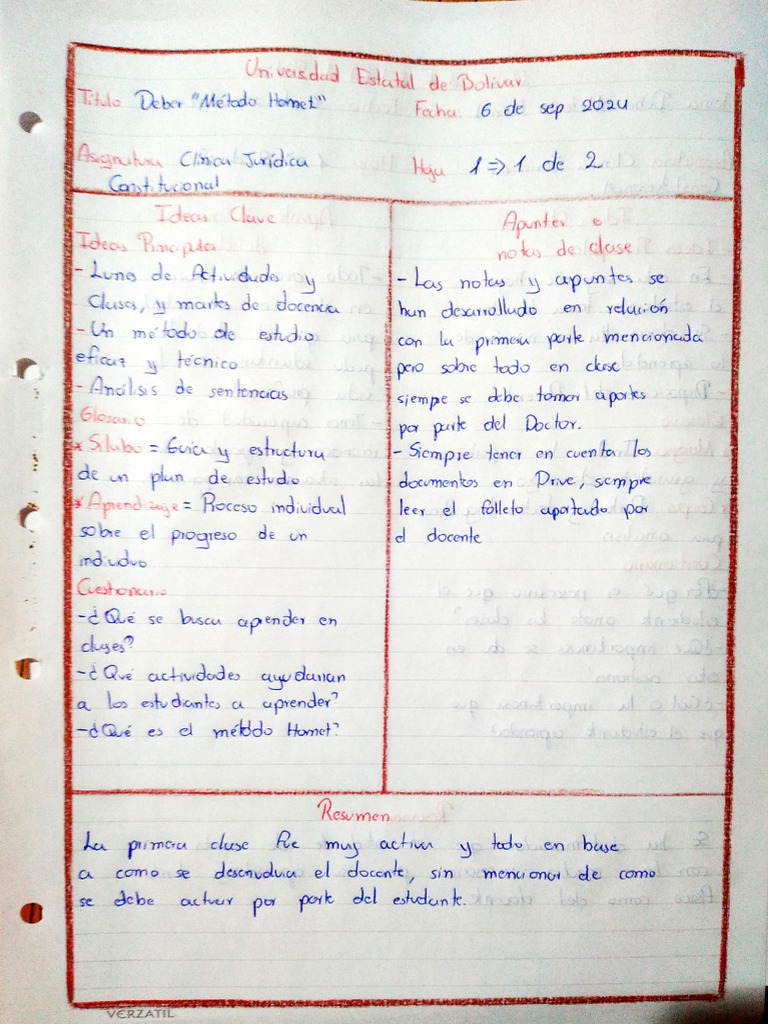 Universidad Estatal de Bolívar
Título Deber "Método Homet" Fecha. 6 de sep 2024
Asignatura Clínica Jurídica Hoja 1 ⇒ 1 de 2
Constitucional
Ideas Clave
Ideas Principales
- Lunes de Actividades y
Clases, y martes de docencia
- Un método de estudio
eficaz y técnico
- Análisis de sentencias
Glosario
* Sílabo = Guía y estructura
de un plan de estudio
* Aprendizaje = Proceso individual
sobre el progreso de un
individuo
Cuestionario
- ¿Qué se busca aprender en
clases?
- ¿Qué actividades ayudarian
a los estudiantes a aprender?
- ¿Qué es el método Homet?
Apuntes o
notas de clase
- Las notas y apuntes se
han desarrollado en relación
con la primera parte mencionada
pero sobre todo en clase
siempe se debe tomar aportes
por parte del Doctor.
- Siempre tener en cuenta los
documentos en Drive, siempre
leer el folleto aportado por
el docente
Resumen
La primera clase fue muy activa y todo en base
a como se desenvolvia el docente, sin mencionar de como
se debe actuar por parte del estudiante.
VERZATIL